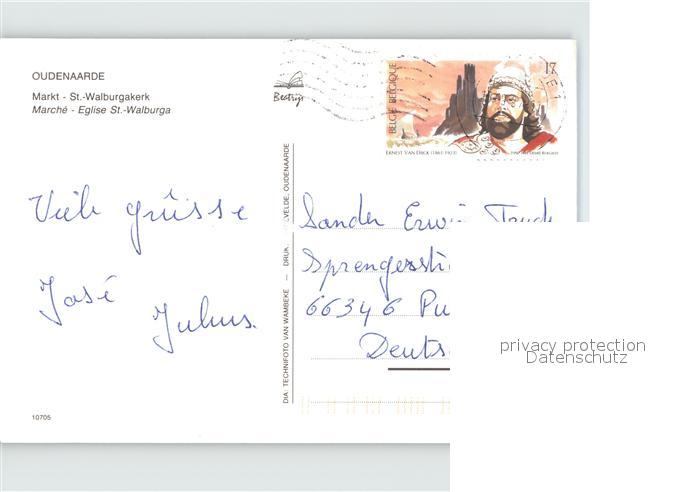 OUDENAARDE
Markt - St.-Walburgakerk
Marché - Eglise St.-Walburga
Viele grüsse
José
Julius.
10705
DIA: TECHNIFOTO VAN WAMBEKE — DRUK. VELDE, OUDENAARDE
BELGIË-BELGIQUE
17
ERNEST VAN DIJCK (1861-1923)
Sander Erwin
66346 Pu
Deuts
privacy protection
Datenschutz